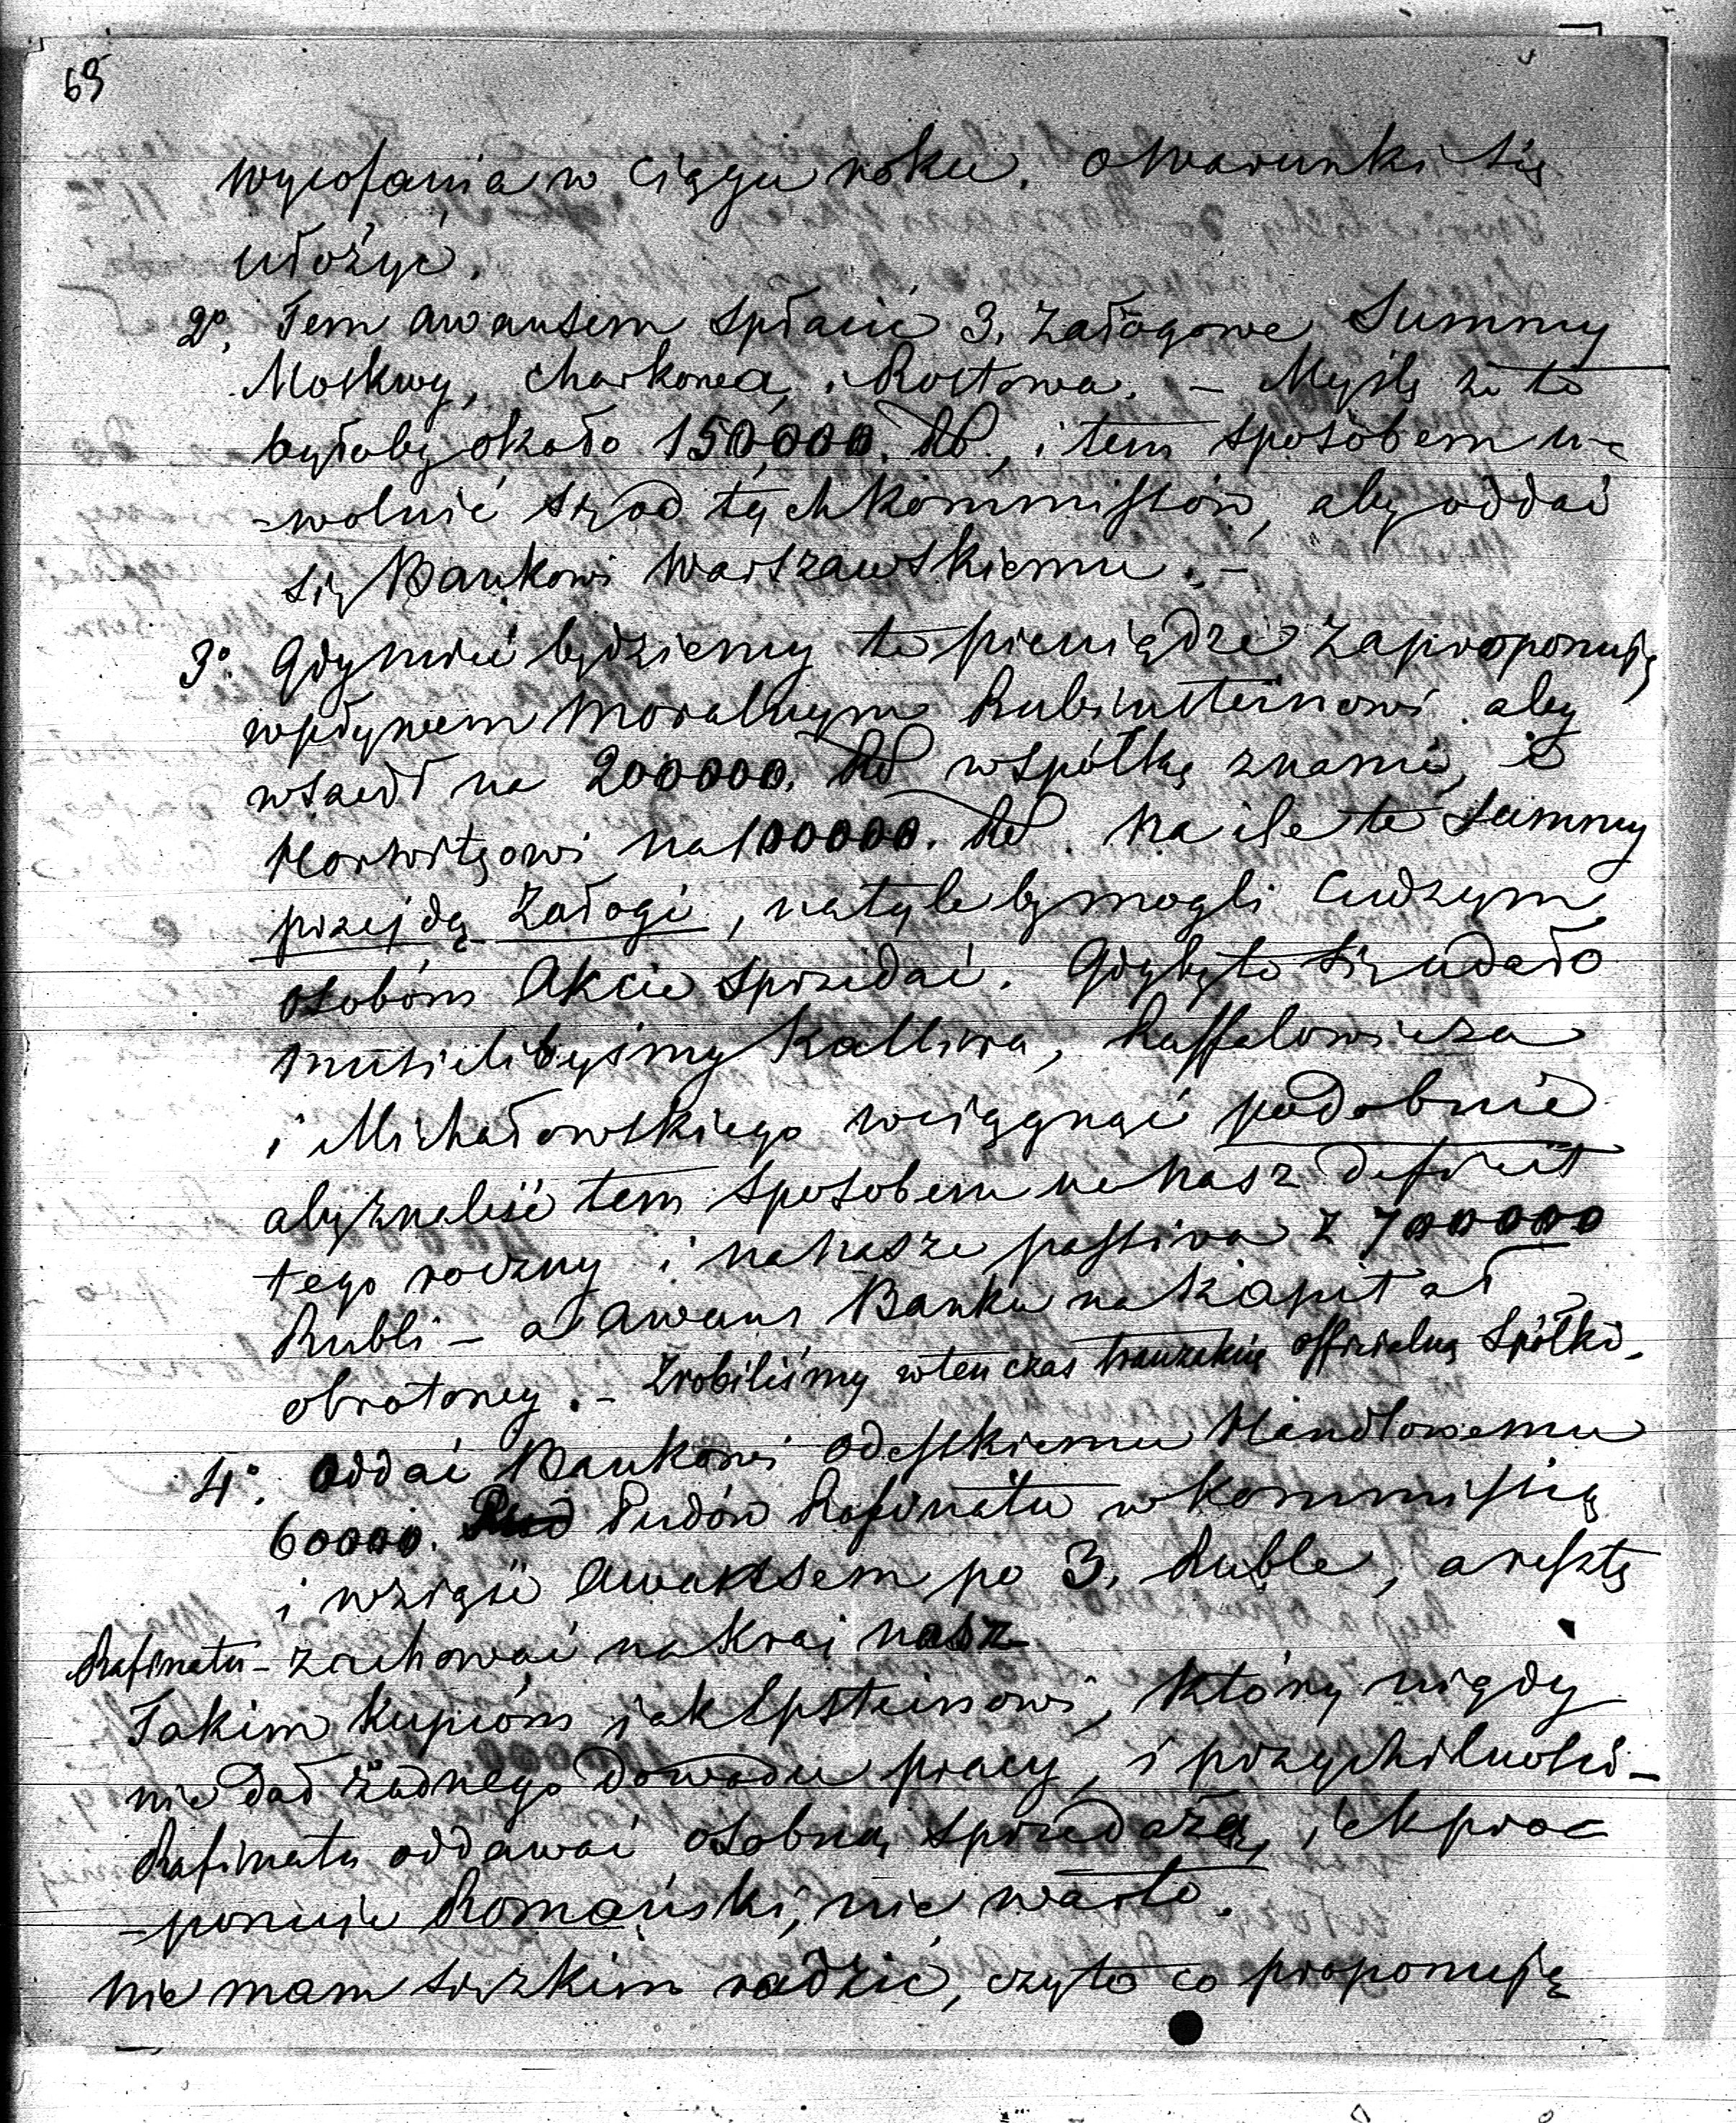 69
wycofania w ciągu roku. o warunki się
ułożyć.
2º. Tem awansem spłacić 3. załogowe Summy
Moskwy, Charkowa, i Rostowa. – Myślę że to
byłoby około 150,000. Rb., i tem sposobem u-
-wolnić się od tych kommissów, aby oddać
się Bankowi Warszawskiemu. –
3º. Gdy mieć będziemy te pieniądze zaproponuję
wpływem moralnym Rubinsteinowi aby
wszedł na 200000. Rb w spółkę z nami, i
Horwitzowi na 100000. Rb. Na ile te Summy
przejdą Załogi, na tyle by mogli cudzym
osobóm Akcie sprzedać. Gdyby to się udało
musielibyśmy Kalliwa, Raffalowicza
i Michałowskiego wciągnąć podobnie
aby znaleść tem sposobem na nasz deficit
tego roczny i na nasze passiva z 700000
Rubli – a awans Banku na Kapitał
obrotowy. – Zrobiliśmy wtenczas tranzakcię officialną Spółki.
4º. Oddać Bankowi Odesskiemu Handlowemu
60000. Pudów Rafinatu w kommissię
i wziąść Awansem po 3. Ruble, a resztę
Rafinatu – zachować na Kraj nasz
Takim Kupcóm jak Epsteinowi, który nigdy
nie dał żadnego dowodu pracy, i przychilności –
Rafinatu oddawać osobną sprzedażą, jak pro-
-ponuje Romański, nie warto.
nie mam się z kim radzić, czy to co proponuję